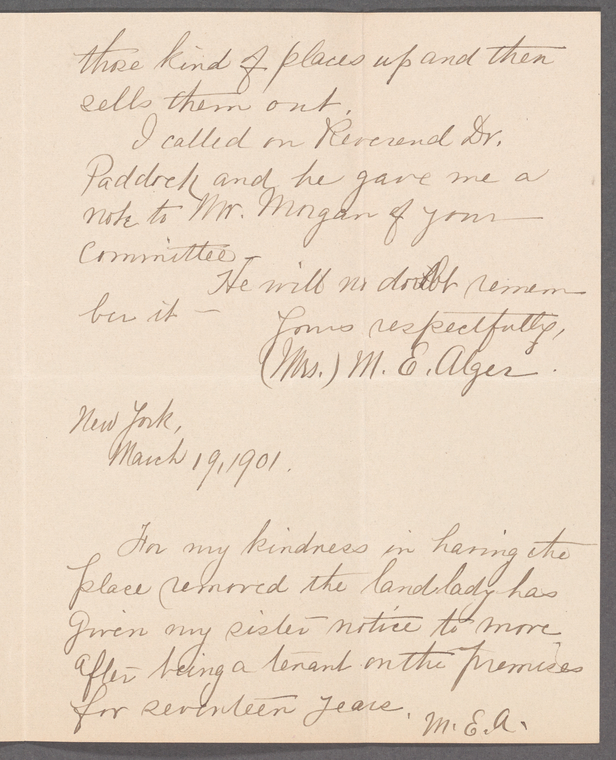 those kind of places up and then
sells them out.
I called on Reverend Dr.
Paddock and he gave me a
note to Mr. Morgan of your
Committee
He will no doubt remem
ber it —
Yours respectfully,
(Mrs.) M. E. Alger.
New York,
March 19, 1901.
For my kindness in having the
place removed the landlady has
given my sister notice to move
after being a tenant on the premises
for seventeen years.
M. E. A.